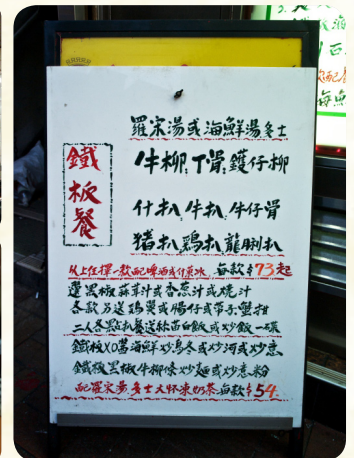 鐵板餐
羅宋湯或海鮮湯多士
牛柳,丁骨,鑊仔柳
什扒,牛扒,牛仔骨
豬扒,鷄扒,龍脷扒
從上任擇一款配啤酒或什菓冰 每款$73起
選黑板蒜茸汁或香葱汁或燒汁
各款另送鷄翼或腸仔或帶子蟹柑
二人各點扒餐送絲苗白飯或炒飯一碟
鐵板XO醬海鮮炒烏冬或炒河或炒意
鐵板黑椒牛柳條炒麵或炒意粉
配羅宋湯,多士大杯凍奶茶每款$54.